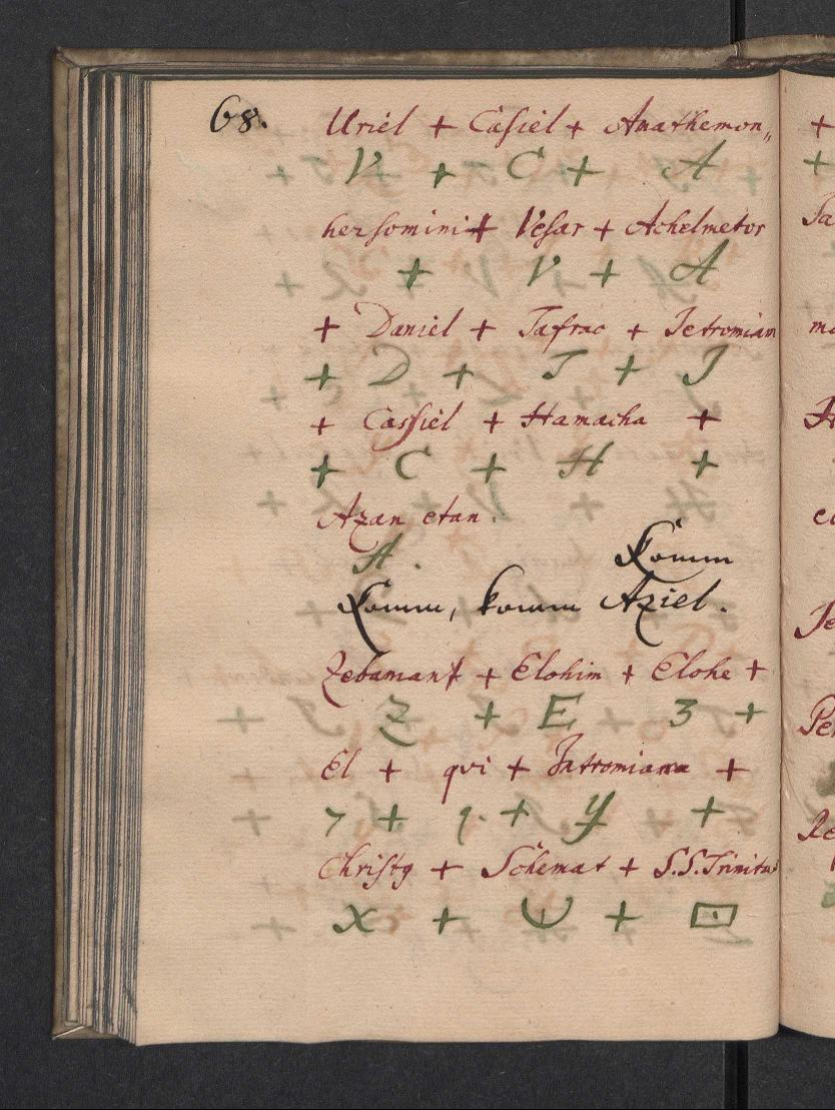 68. Uriel + Casiel + Anathemon„
V + C + A
hersomini + Vesar + Achelmetor
+ V + A
+ Daniel + Tafrac + Jetromiam
+ D + T + J
+ Cassiel + Hamacha +
+ C + H +
Azan etan.
A.
Komm
Komm, komm Aziel.
Zebaman + Elohim + Elohe +
Z + E 3 +
El + qui + +
7 + q. + y +
Christq + Schemat + S.S. Trinitas
X + +